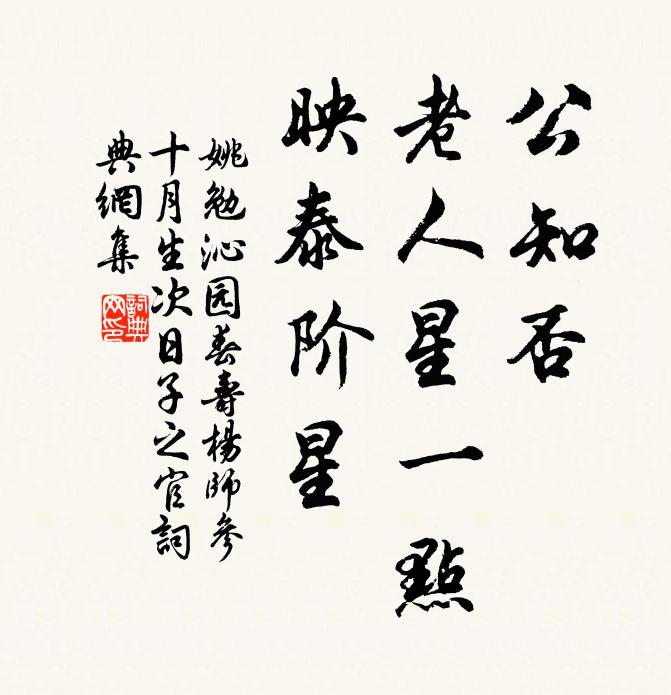 公知否
老人星一點
映泰阶星
姚勉沁园春壽楊師參
十月生次日子之官詞
典網集
詞典网印